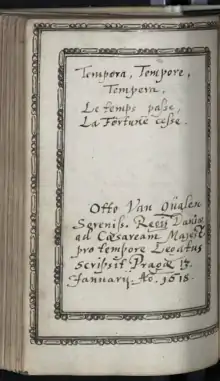 Tempora, Tempore,
Tempera,
Le temps passe,
La Fortune cesse.
Otto Van Qualen
Sereniss. Regis Daniæ
ad Cæsaream Majest:
pro tempore Legatus
scripsit Pragæ 17.
January. Ao. 1615.